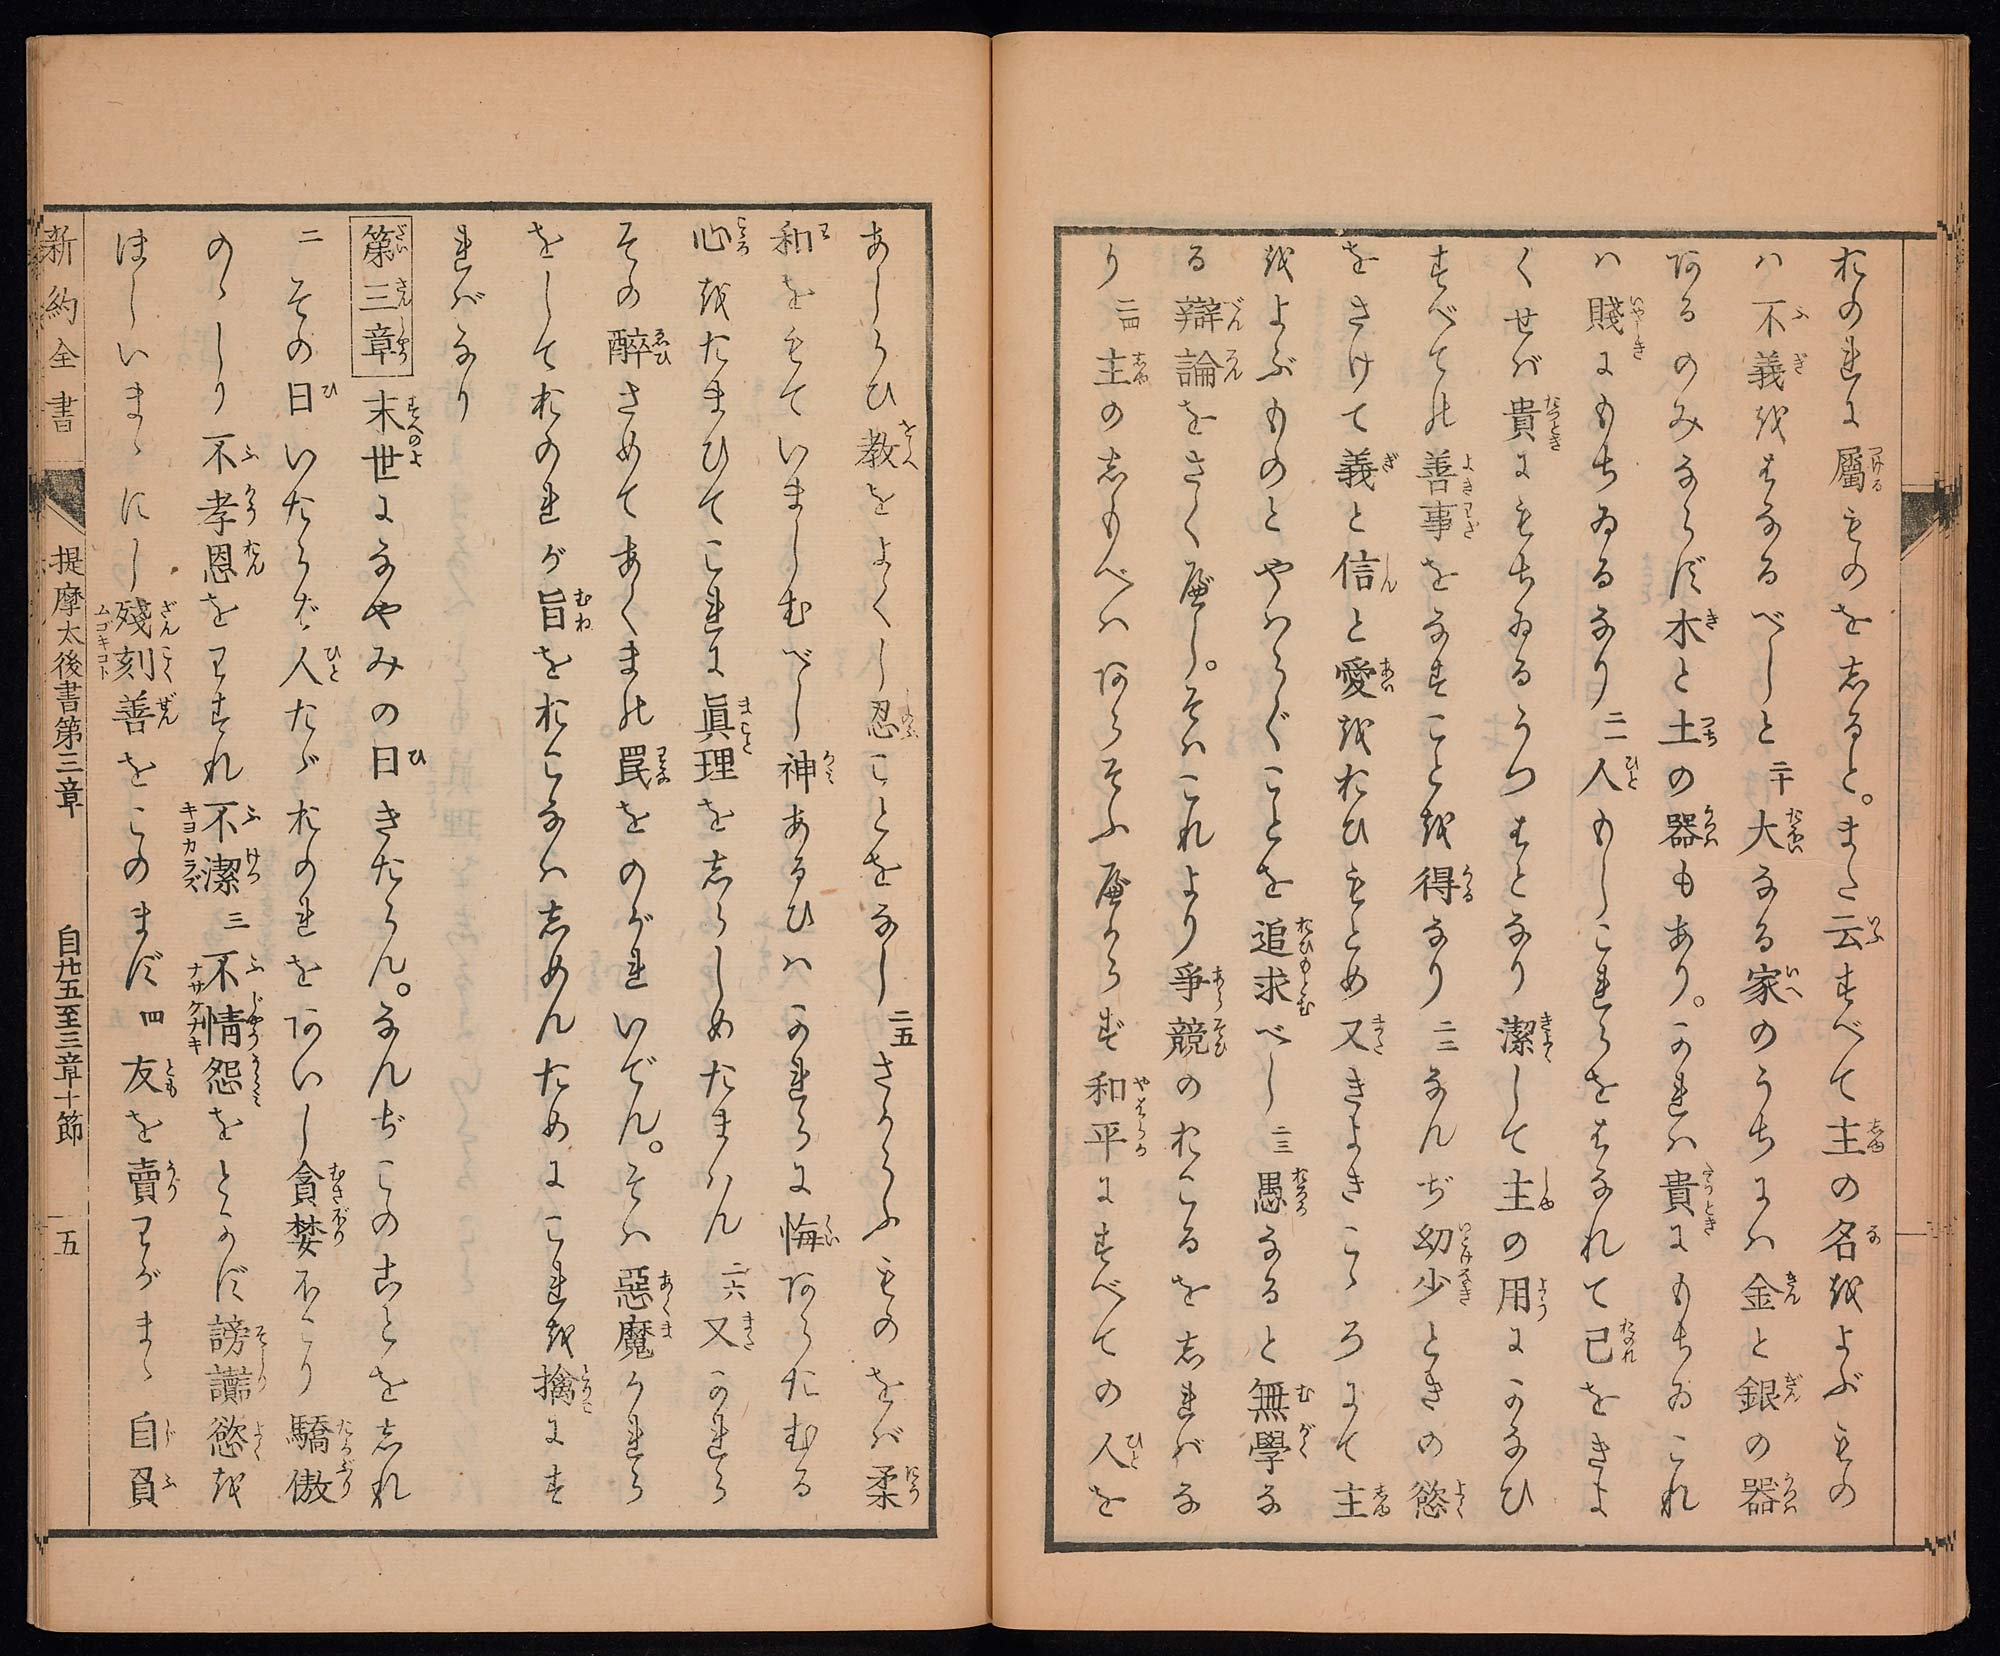 おのれに屬ものをしると。また云すべて主の名をよぶもの
ハ不義をはなるべしと二十大なる家のうちにハ金と銀の器
あるのみならず木と土の器もあり。かれハ貴にもちゐこれ
ハ賤にもちゐるなり二一人もしこれらをはなれて己をきよ
くせバ貴にもちゐるうつはとなり潔して主の用にかなひ
すべての善事をなすことを得なり二二なんぢ幼少ときの慾
をさけて義と信と愛をおひもとめ又きよきこゝろにて主
をよぶものとやハらぐことを追求べし二三愚なると無學な
る辯論をさく可し。そハこれより爭競のおこるをしれバな
り二四主のしもべハあらそふ可からず和平にすべての人を
あしらひ教をよくし忍ことをなし二五さからふものをバ柔
和をもていましむべし神あるひハかれらに悔あらたむる
心をたまひてこれに眞理をしらしめたまハん二六又かれら
その醉さめてあくまの罠をのがれいでん。そハ惡魔かれら
をしておのれが旨をおこなハしめんためにこれを擒にす
れバなり
第三章末世になやみの日きたらん。なんぢこのことをしれ
二その日いたらバ人たゞおのれをあいし貪婪ほこり驕傲
のゝしり不孝恩をわすれ不潔三不情怨をとかず謗讟慾を
ほしいまゝにし殘刻善をこのまず四友を賣わがまゝ自負
新約全書 提摩太後書第三章 自廿五至三章十節 五